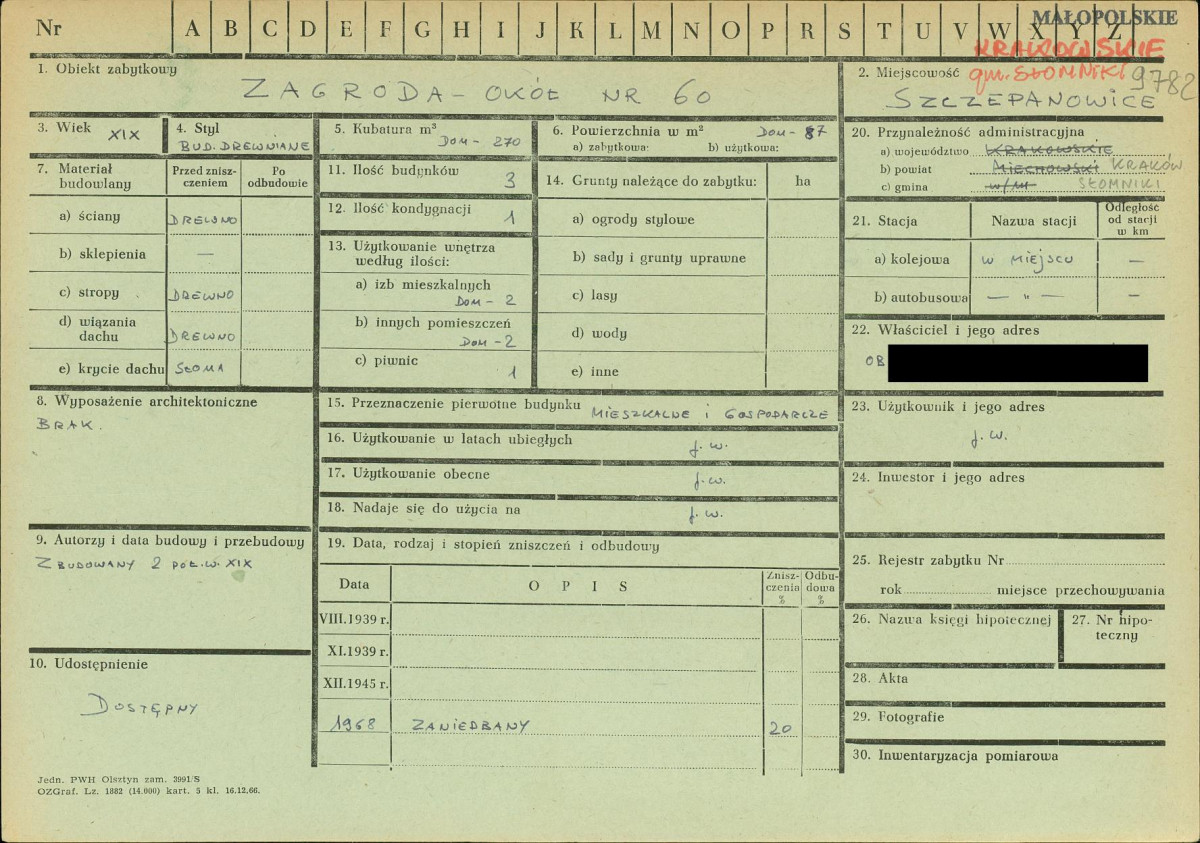 Nr A B C D E F G H I J K L M N O P R S T U V W X Y Z
MAŁOPOLSKIE
KRAKOWSKIE
gm. SŁOMNIKI
9782
1. Obiekt zabytkowy
ZAGRODA - OKÓŁ NR 60
2. Miejscowość
SZCZEPANOWICE
3. Wiek XIX
4. Styl
BUD. DREWNIANE
5. Kubatura m³
DOM - 270
6. Powierzchnia w m² DOM - 87
a) zabytkowa: b) użytkowa:
7. Materiał budowlany
Przed zniszczeniem
Po odbudowie
a) ściany DREWNO
b) sklepienia —
c) stropy DREWNO
d) wiązania dachu DREWNO
e) krycie dachu SŁOMA
8. Wyposażenie architektoniczne
BRAK.
9. Autorzy i data budowy i przebudowy
ZBUDOWANY 2 POŁ. W. XIX
10. Udostępnienie
DOSTĘPNY
11. Ilość budynków 3
12. Ilość kondygnacji 1
13. Użytkowanie wnętrza
według ilości:
a) izb mieszkalnych
DOM - 2
b) innych pomieszczeń
DOM - 2
c) piwnic 1
14. Grunty należące do zabytku: ha
a) ogrody stylowe
b) sady i grunty uprawne
c) lasy
d) wody
e) inne
15. Przeznaczenie pierwotne budynku MIESZKALNE i GOSPODARCZE
16. Użytkowanie w latach ubiegłych j.w.
17. Użytkowanie obecne j.w.
18. Nadaje się do użycia na j.w.
19. Data, rodzaj i stopień zniszczeń i odbudowy
Data OPIS Zniszczenia % Odbudowa %
VIII.1939 r.
XI.1939 r.
XII.1945 r.
1968 ZANIEDBANY 20
20. Przynależność administracyjna
a) województwo KRAKOWSKIE
b) powiat MIECHOWSKI KRAKÓW
c) gmina w/m SŁOMNIKI
21. Stacja Nazwa stacji Odległość od stacji w km
a) kolejowa W MIEJSCU —
b) autobusowa — " — —
22. Właściciel i jego adres
OB
23. Użytkownik i jego adres
j.w.
24. Inwestor i jego adres
25. Rejestr zabytku Nr
rok miejsce przechowywania
26. Nazwa księgi hipotecznej
27. Nr hipoteczny
28. Akta
29. Fotografie
30. Inwentaryzacja pomiarowa
Jedn. PWH Olsztyn zam. 3991/S
OZGraf. Lz. 1882 (14.000) kart. 5 kl. 16.12.66.